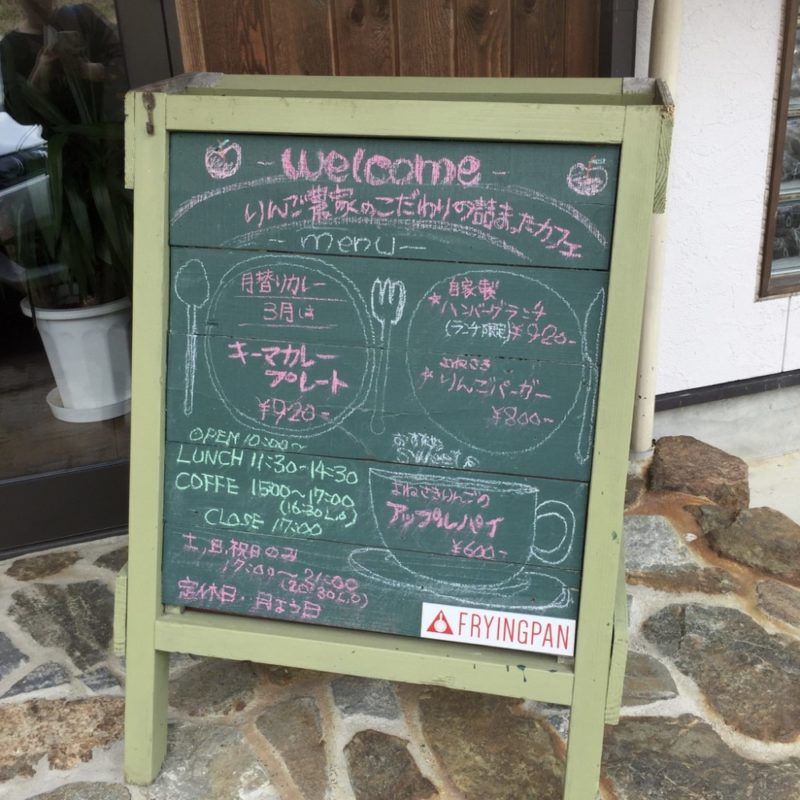 - welcome -
りんご農家のこだわりの詰まったカフェ
- menu -
月替りカレー
3月は
キーマカレー
プレート
¥920-
自家製
★ハンバーグランチ
(ランチ限定) ¥920-
よねざき
★りんごバーガー
¥800-
OPEN 10:00~
LUNCH 11:30-14:30
COFFE 1500~17:00
(16:30 L.O)
CLOSE 17:00
Sweets
よねさきりんごの
アップルパイ
¥600-
土,日,祝日のみ
17:00~21:00
(20:30 L.O)
定休日..月よう日
FRYINGPAN